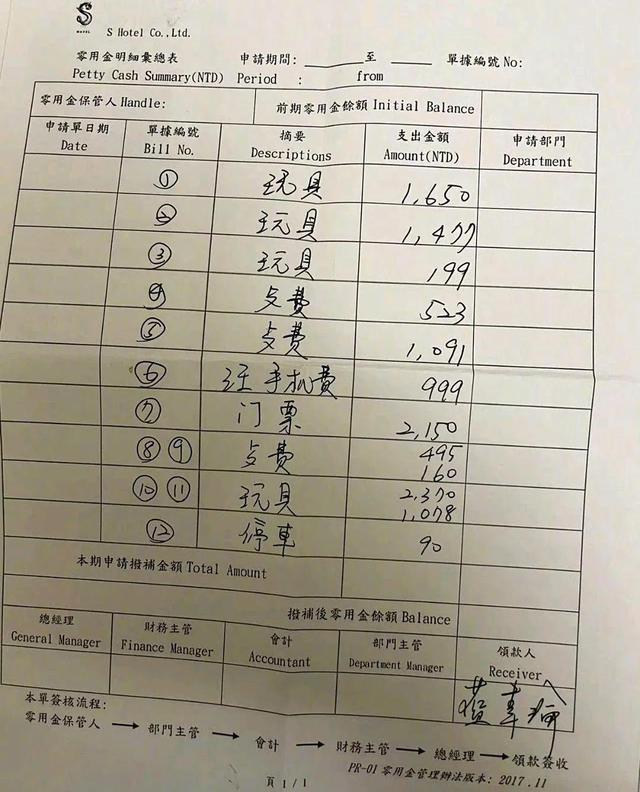 S
HOTEL
S Hotel Co.,Ltd.
零用金明細彙總表 申請期間: ______ 至 ______ 單據編號 No:
Petty Cash Summary(NTD) Period : from
零用金保管人 Handle: 前期零用金餘額 Initial Balance
申請單日期 單據編號 摘要 支出金額 申請部門
Date Bill No. Descriptions Amount(NTD) Department
① 玩具 1,650
② 玩具 1,477
③ 玩具 199
④ 费 523
⑤ 费 1,091
⑥ 汪手机費 999
⑦ 门票 2,150
⑧ ⑨ 费 495
160
⑩ ⑪ 玩具 2,370
1,078
⑫ 停車 90
本期申請撥補金額 Total Amount
撥補後零用金餘額 Balance
總經理 財務主管 會計 部門主管 領款人
General Manager Finance Manager Accountant Department Manager Receiver
本單簽核流程:
零用金保管人 → 部門主管 → 會計 → 財務主管 → 總經理 → 領款簽收
PR-01 零用金管理辦法版本: 2017.11
頁 1/1